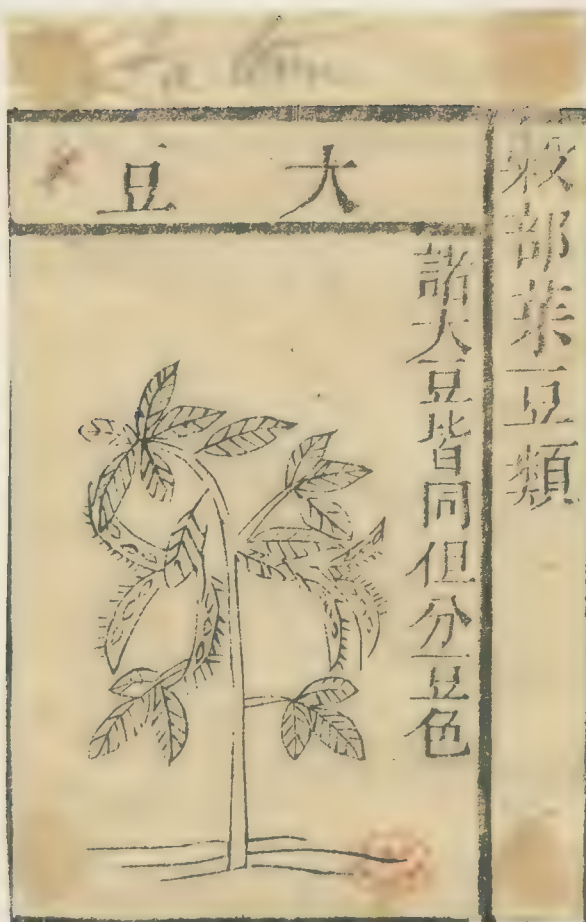 穀部菽豆類
大豆
諸大豆皆同但分豆色